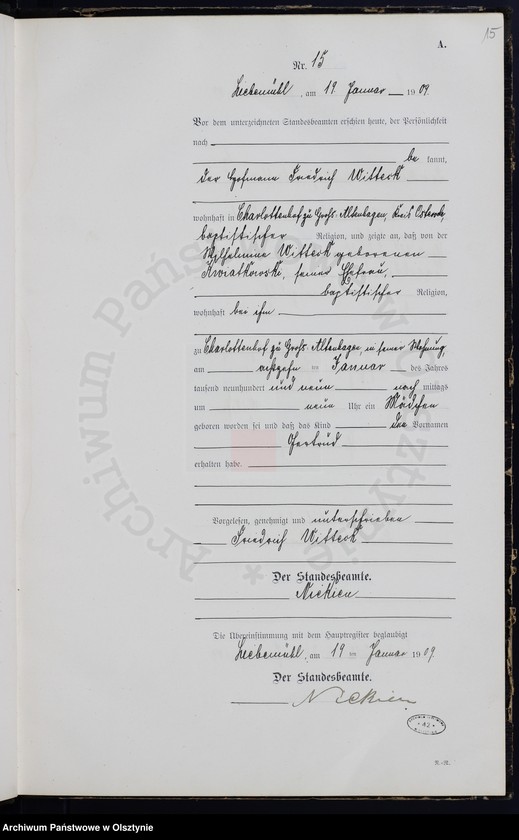 15
A.
Nr. 15
Liebemühl, am 19 Januar 1909
Vor dem unterzeichneten Standesbeamten erschien heute, der Persönlichkeit
nach
be kannt,
der Hofmann Friedrich Witteck
wohnhaft in Charlottenhof zu Groß Altenhagen, Kreis Osterode
baptistischer Religion, und zeigte an, daß von der
Wilhelmine Witteck geborenen
Kwiatkowski, seiner Ehefrau,
baptistischer Religion,
wohnhaft bei ihm
zu Charlottenhof zu Groß Altenhagen, in seiner Wohnung,
am achtzehn ten Januar des Jahres
tausend neunhundert und neun nach mittags
um neun Uhr ein Mädchen
geboren worden sei und daß das Kind den Vornamen
Gertrud
erhalten habe.
Vorgelesen, genehmigt und unterschrieben
Friedrich Witteck
Der Standesbeamte.
Nickien
Die Übereinstimmung mit dem Hauptregister beglaubigt
Liebemühl, am 19 ten Januar 1909
Der Standesbeamte.
Nickien
42
Archiwum Państwowe w Olsztynie